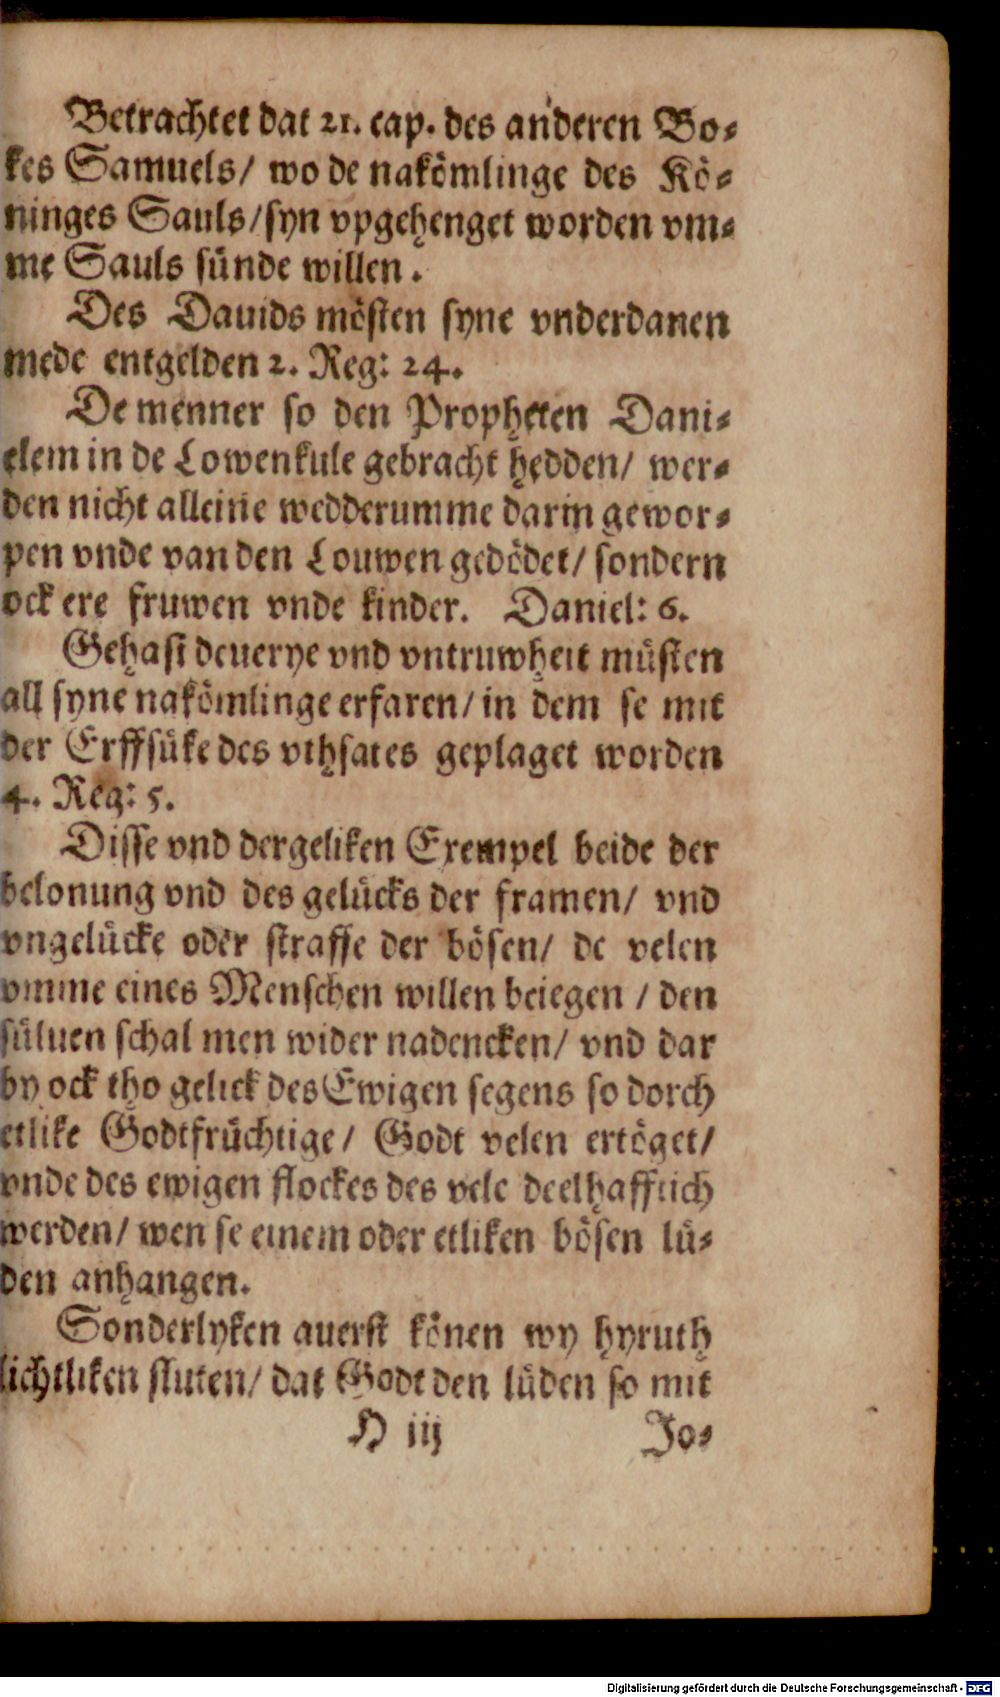 Betrachtet dat 21. cap. des anderen Bo-
kes Samuels/ wo de nakömlinge des Kö-
ninges Sauls/ syn vpgehenget worden vm-
me Sauls sünde willen.
Des Dauids mösten syne vnderdanen
mede entgelden 2. Reg: 24.
De menner so den Propheten Dani-
elem in de Lowenkule gebracht hedden/ wer-
den nicht alleine wedderumme darin gewor-
pen vnde van den Louwen gedödet/ sondern
ock ere fruwen vnde kinder. Daniel: 6.
Gehasi deuerye vnd vntruwheit müsten
all syne nakömlinge erfaren/ in dem se mit
der Erffsüke des vthsates geplaget worden
4. Reg: 5.
Disse vnd dergeliken Exempel beide der
belonung vnd des gelücks der framen/ vnd
vngelücke oder straffe der bösen/ de velen
vmme eines Menschen willen beiegen / den
süluen schal men wider nadencken/ vnd dar
by ock tho gelick des Ewigen segens so dorch
etlike Godtfrüchtige/ Godt velen ertöget/
vnde des ewigen flockes des vele deelhafftich
werden/ wen se einem oder etliken bösen lü-
den anhangen.
Sonderlyken auerst könen wy hyruth
lichtliken sluten/ dat Godt den lüden so mit
H iij Jo-
Digitalisierung gefördert durch die Deutsche Forschungsgemeinschaft - DFG